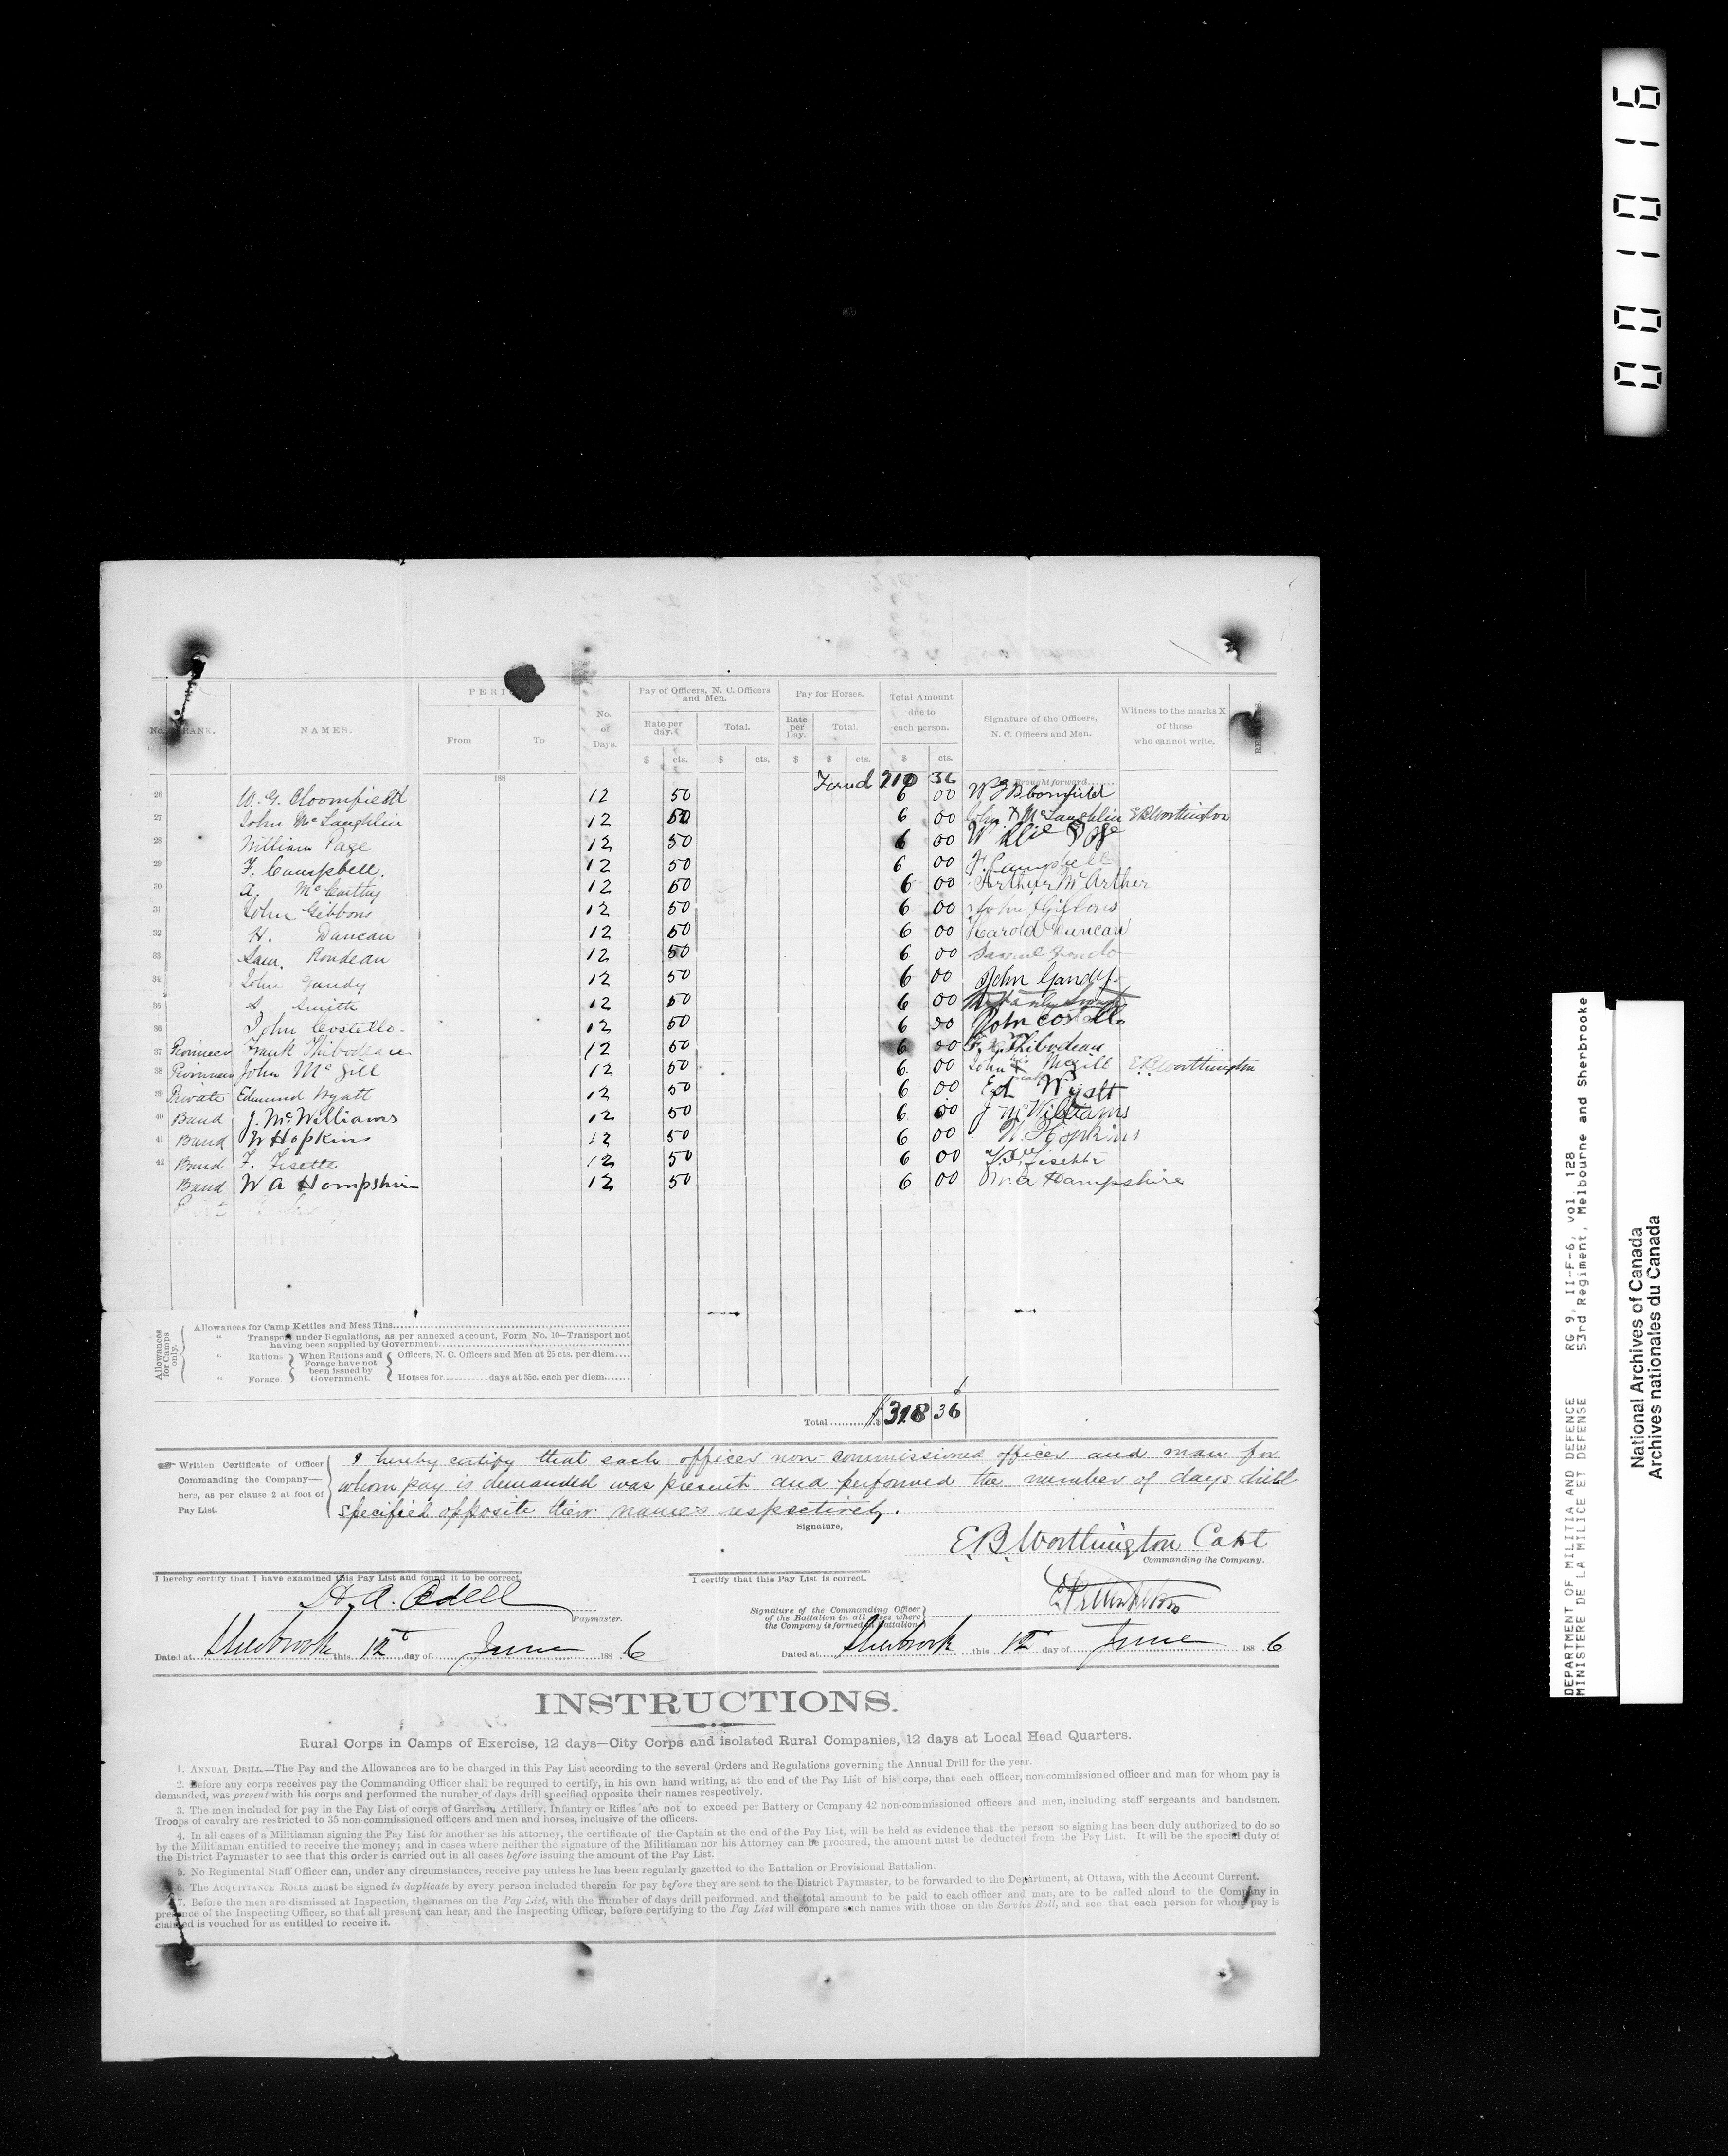 001016
PERI
Pay of Officers, N. C. Officers and Men.
Pay for Horses.
Total Amount due to each person.
No. RANK. NAMES. From To No. of Days. Rate per day. Total. Rate per Day. Total. Signature of the Officers, N. C. Officers and Men. Witness to the marks X of those who cannot write.
$ cts. $ cts. $ $ cts. $ cts.
188 Forwd 210 36 Brought forward......
26 W. G. Bloomfield 12 50 6 00 W G Bloomfield
27 John McLaughlin 12 50 6 00 John X McLaughlin E B Worthington
28 William Page 12 50 6 00 Page
29 F. Campbell. 12 50 6 00 F. Campbell
30 A. McCarthy 12 50 6 00 Arthur McArther
31 John Gibbons 12 50 6 00 John Gibbons
32 H. Duncan 12 50 6 00 Harold Duncan
33 Sam. Rondeau 12 50 6 00 Samuel
34 John Gandy 12 50 6 00 John Gandy
35 S. Smith 12 50 6 00
36 John Costello. 12 50 6 00 John Costello
37 Pioneer Frank Thibodeau 12 50 6 00 F. X. Thibodeau
38 Pioneer John McGill 12 50 6 00 John his X mark McGill E. B. Worthington
39 Private Edmund Wyatt 12 50 6 00 Ed Wyatt
40 Band J. McWilliams 12 50 6 00 J McWilliams
41 Band W Hopkins 12 50 6 00 W. Hopkins
42 Band F. Fisette 12 50 6 00 Fisette
Band W A Hampshire 12 50 6 00 W. A Hampshire
Allowances for Camps only.
Allowances for Camp Kettles and Mess Tins
" Transport under Regulations, as per annexed account, Form No. 10—Transport not having been supplied by Government
" Rations When Rations and Forage have not been issued by Government. Officers, N. C. Officers and Men at 25 cts. per diem....
" Forage. Horses for days at 35c. each per diem......
Total $ 318 36
Written Certificate of Officer Commanding the Company—here, as per clause 2 at foot of Pay List.
I hereby certify that each officer non-commissioned officer and man for
whom pay is demanded was present and performed the number of days drill
specified opposite their names respectively.
Signature,
E. B. Worthington Capt
Commanding the Company.
I hereby certify that I have examined this Pay List and found it to be correct.
I certify that this Pay List is correct.
H. A. Odell
Paymaster.
Signature of the Commanding Officer of the Battalion in all cases where the Company is formed in Battalion
Dated at Sherbrook this 12 day of June 1886
Dated at Sherbrook this 12 day of June 1886
INSTRUCTIONS.
Rural Corps in Camps of Exercise, 12 days—City Corps and isolated Rural Companies, 12 days at Local Head Quarters.
1. ANNUAL DRILL.—The Pay and the Allowances are to be charged in this Pay List according to the several Orders and Regulations governing the Annual Drill for the year.
2. Before any corps receives pay the Commanding Officer shall be required to certify, in his own hand writing, at the end of the Pay List of his corps, that each officer, non-commissioned officer and man for whom pay is
demanded, was present with his corps and performed the number of days drill specified opposite their names respectively.
3. The men included for pay in the Pay List of corps of Garrison Artillery, Infantry or Rifles are not to exceed per Battery or Company 42 non-commissioned officers and men, including staff sergeants and bandsmen.
Troops of cavalry are restricted to 35 non-commissioned officers and men and horses, inclusive of the officers.
4. In all cases of a Militiaman signing the Pay List for another as his attorney, the certificate of the Captain at the end of the Pay List, will be held as evidence that the person so signing has been duly authorized to do so
by the Militiaman entitled to receive the money; and in cases where neither the signature of the Militiaman nor his Attorney can be procured, the amount must be deducted from the Pay List. It will be the special duty of
the District Paymaster to see that this order is carried out in all cases before issuing the amount of the Pay List.
5. No Regimental Staff Officer can, under any circumstances, receive pay unless he has been regularly gazetted to the Battalion or Provisional Battalion.
6. The ACQUITTANCE ROLLS must be signed in duplicate by every person included therein for pay before they are sent to the District Paymaster, to be forwarded to the Department, at Ottawa, with the Account Current.
7. Before the men are dismissed at Inspection, the names on the Pay List, with the number of days drill performed, and the total amount to be paid to each officer and man, are to be called aloud to the Company in
presence of the Inspecting Officer, so that all present can hear, and the Inspecting Officer, before certifying to the Pay List will compare such names with those on the Service Roll, and see that each person for whom pay is
claimed is vouched for as entitled to receive it.
DEPARTMENT OF MILITIA AND DEFENCE RG 9, II-F-6, vol 128
MINISTERE DE LA MILICE ET DEFENSE 53rd Regiment, Melbourne and Sherbrooke
National Archives of Canada
Archives nationales du Canada